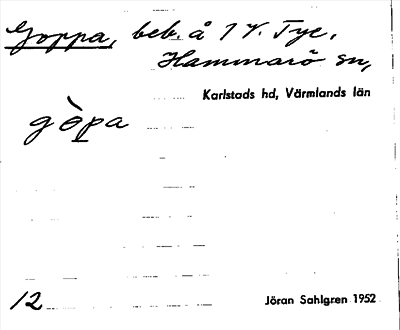 Goppa, beb. å 1 V. Tye,
Hammarö sn,
Karlstads hd, Värmlands län
gòpa
12
Jöran Sahlgren 1952